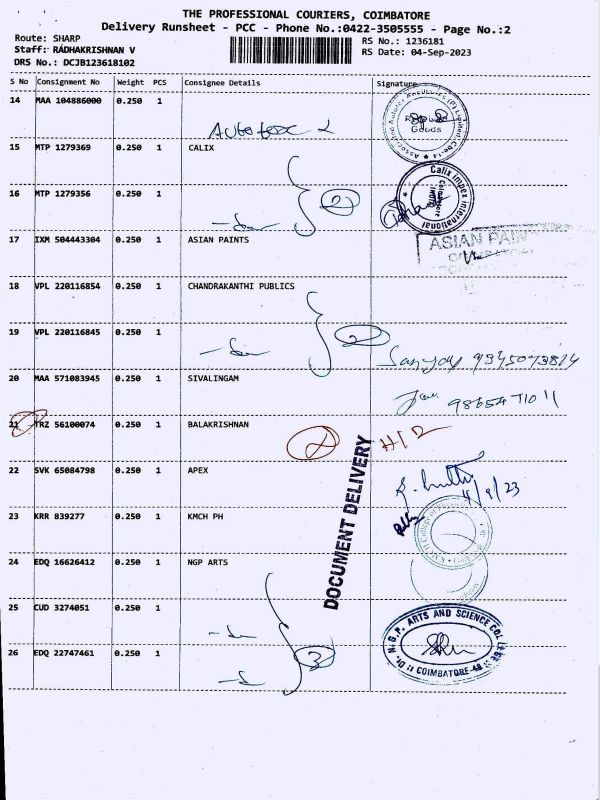 THE PROFESSIONAL COURIERS, COIMBATORE
Delivery Runsheet - PCC - Phone No.:0422-3505555 - Page No.:2
Route: SHARP
Staff: RADHAKRISHNAN V
DRS No.: DCJB123618102
RS No.: 1236181
RS Date: 04-Sep-2023
S No Consignment No Weight PCS Consignee Details Signature
14 MAA 104886000 0.250 1
15 MTP 1279369 0.250 1 CALIX
16 MTP 1279356 0.250 1 2
Calix Impex International
Coimbatore
17 IXM 504443304 0.250 1 ASIAN PAINTS
ASIAN PAIN
18 VPL 220116854 0.250 1 CHANDRAKANTHI PUBLICS
19 VPL 220116845 0.250 1 2
Sanjay 9345073814
20 MAA 571083945 0.250 1 SIVALINGAM
21 TRZ 56100074 0.250 1 BALAKRISHNAN
22 SVK 65084798 0.250 1 APEX
4/9/23
23 KRR 839277 0.250 1 KMCH PH
24 EDQ 16626412 0.250 1 NGP ARTS
DOCUMENT DELIVERY
25 CUD 3274051 0.250 1
26 EDQ 22747461 0.250 1 3
Dr. N.G.P. ARTS AND SCIENCE COLLEGE
COIMBATORE-48